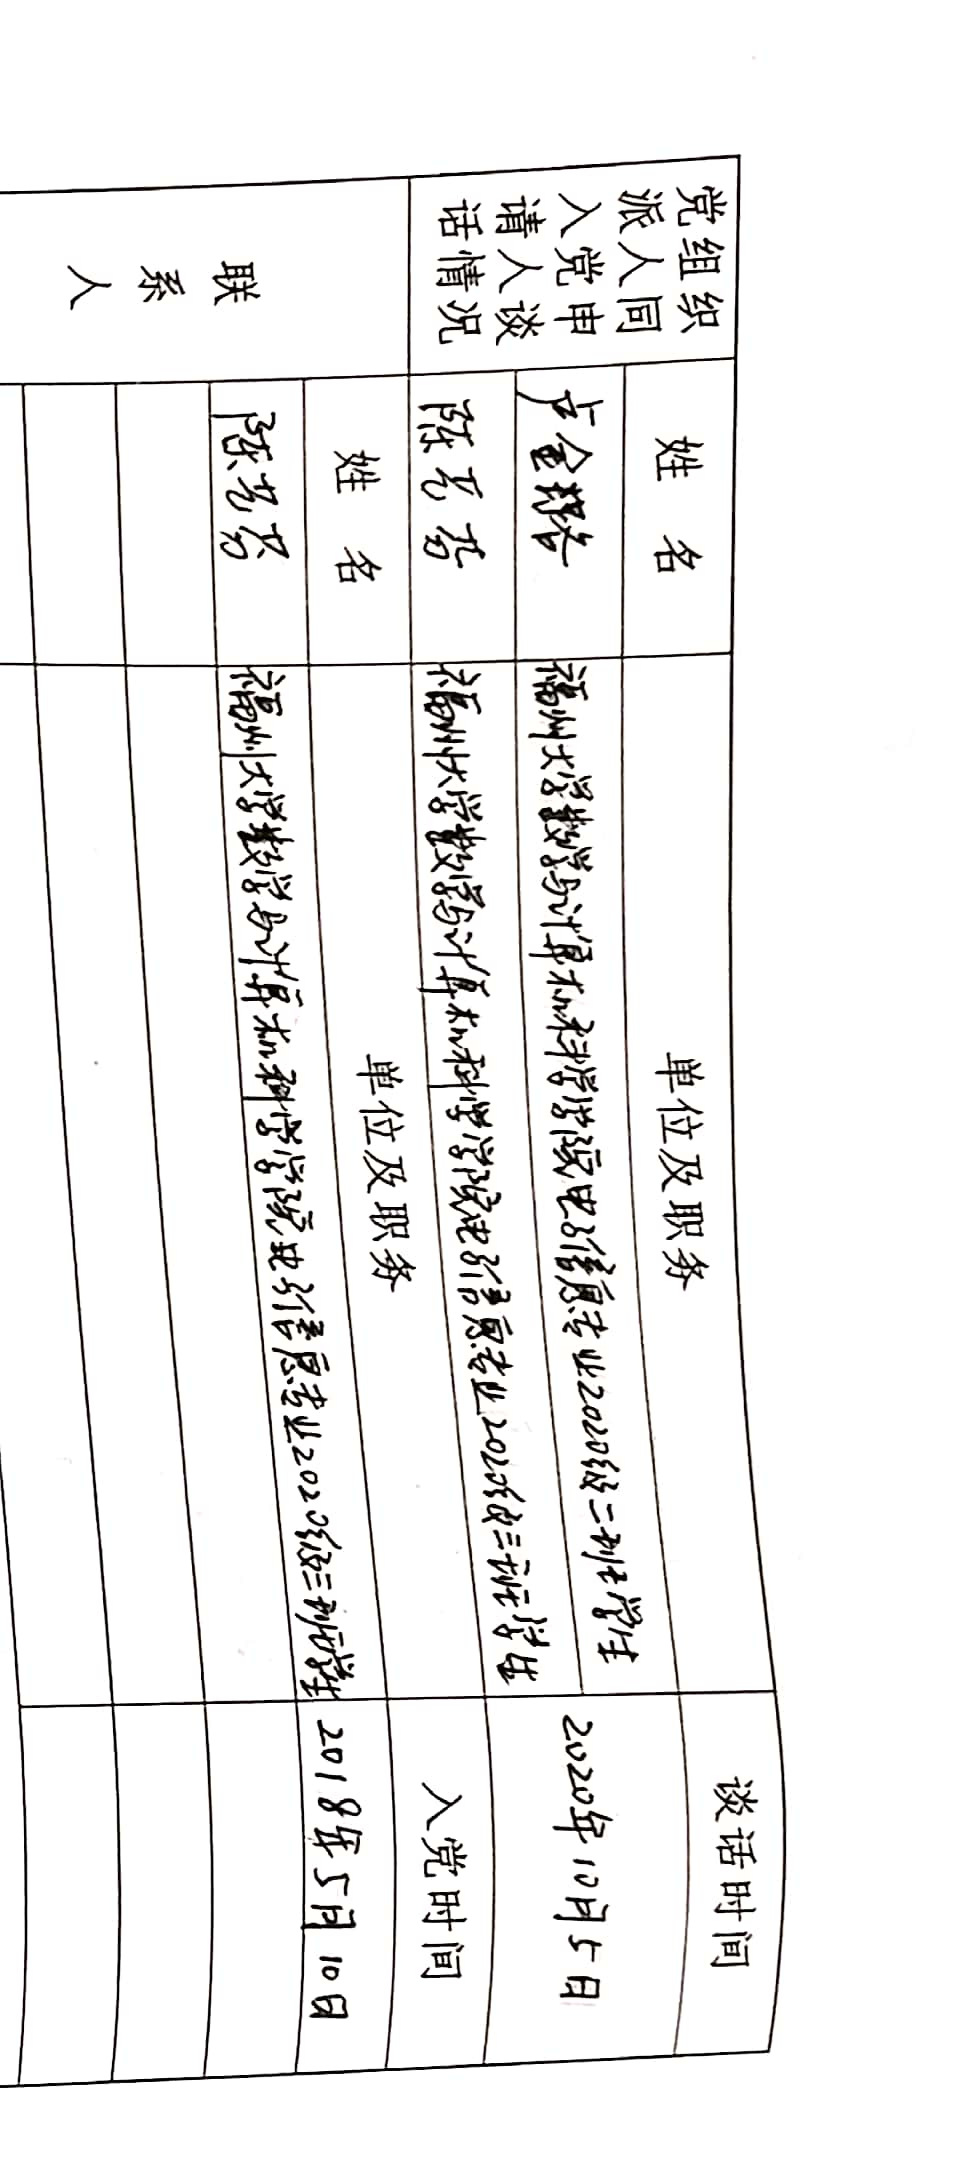 党组织
派人同
入党申
请人谈
话情况
姓 名
单位及职务
谈话时间
福州大学数学与计算机科学学院电子信息专业2020级二班学生
2020年10月5日
福州大学数学与计算机科学学院电子信息专业2020级三班学生
联
系
人
姓 名
单位及职务
入党时间
福州大学数学与计算机科学学院电子信息专业2020级三班学生
2018年5月10日